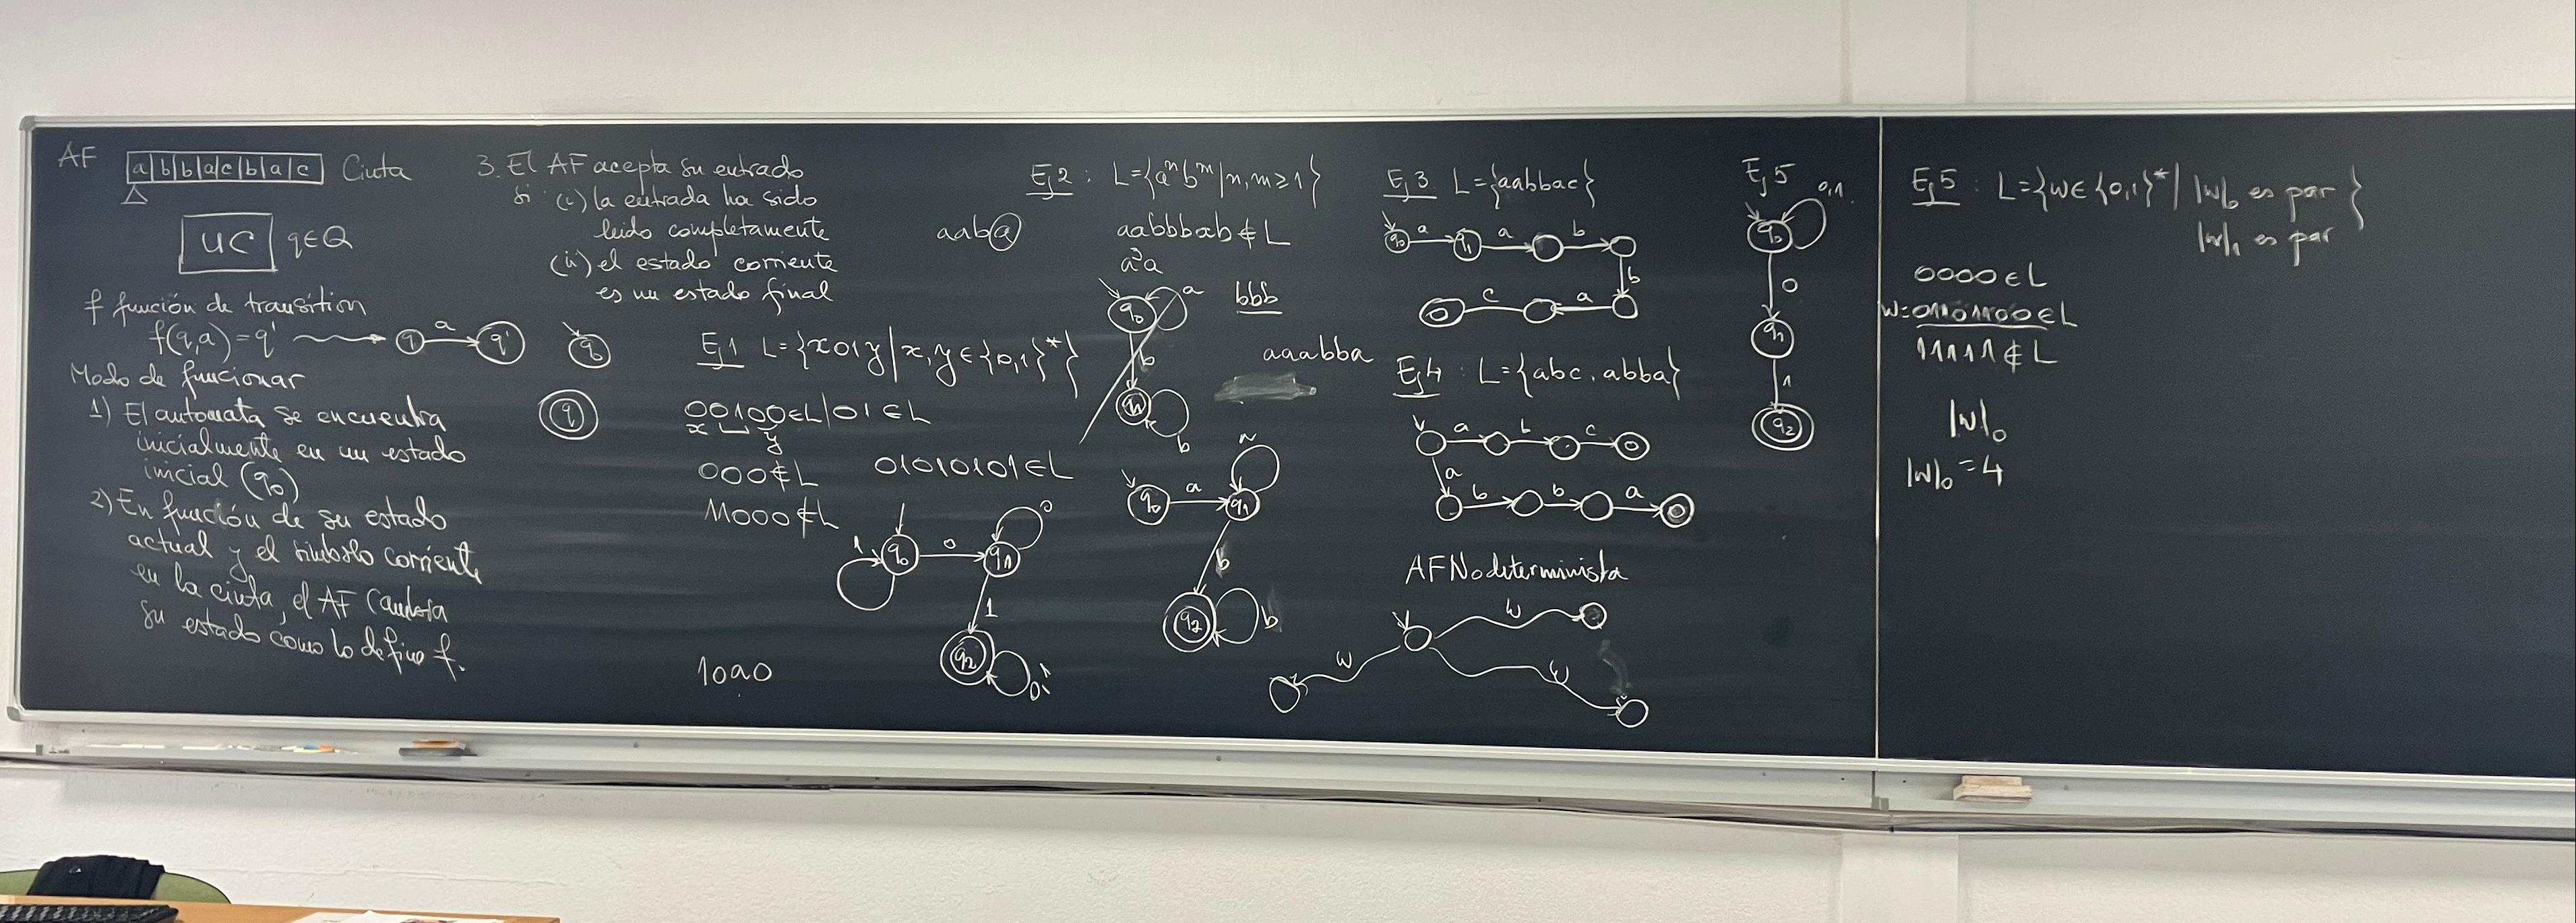 AF
a|b|b|a|c|b|a|c Cinta
UC q∈Q
f función de transition
f(q,a)=q'
q a q'
q₀
Modo de funcionar
1) El automata se encuentra
inicialmente en un estado
inicial (q₀)
q
2) En función de su estado
actual y el símbolo corriente
en la cinta, el AF cambia
su estado como lo define f.
3. El AF acepta su entrada
si (i) la entrada ha sido
leido completamente
(ii) el estado corriente
es un estado final
aaba
Ej1 L={x01y|x,y∈{0,1}*}
00100∈L|01∈L
x y
000∉L
01010101∈L
11000∉L
1 q₀ 0 q₁ 0
1
q₂ 0,1
Ej2: L={aⁿbᵐ|n,m≥1}
aabbbab∉L
bbb
q₀ a
b
q₁ b
aaabba
q₀ a q₁
b
q₂ b
Ej3 L={aabbac}
q₀ a q₁ a b
b
c a
Ej4: L={abc, abba}
a b c
a
b b a
AF No determinista
w
w w
Ej5
0,1
q₀
0
q₁
1
q₂
Ej5: L={w∈{0,1}*| |w|₀ es par }
|w|₁ es par
0000∈L
w=01101100∈L
11111∉L
|w|₀
|w|₀=4